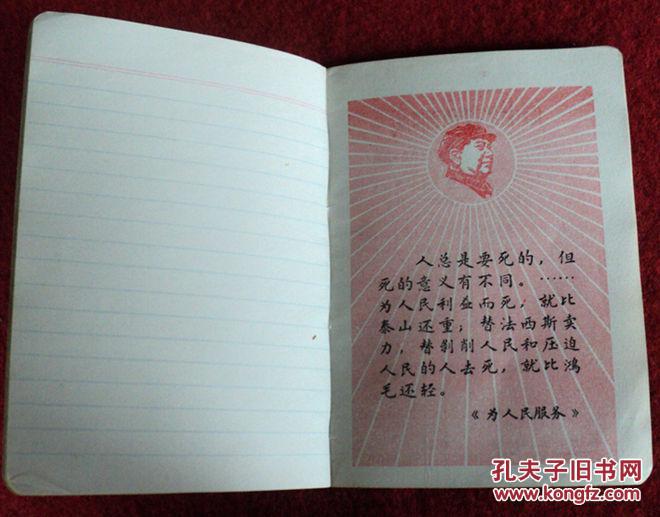 人总是要死的，但
死的意义有不同。……
为人民利益而死，就比
泰山还重；替法西斯卖
力，替剥削人民和压迫
人民的人去死，就比鸿
毛还轻。
《为人民服务》
孔夫子旧书网
www.kongfz.com